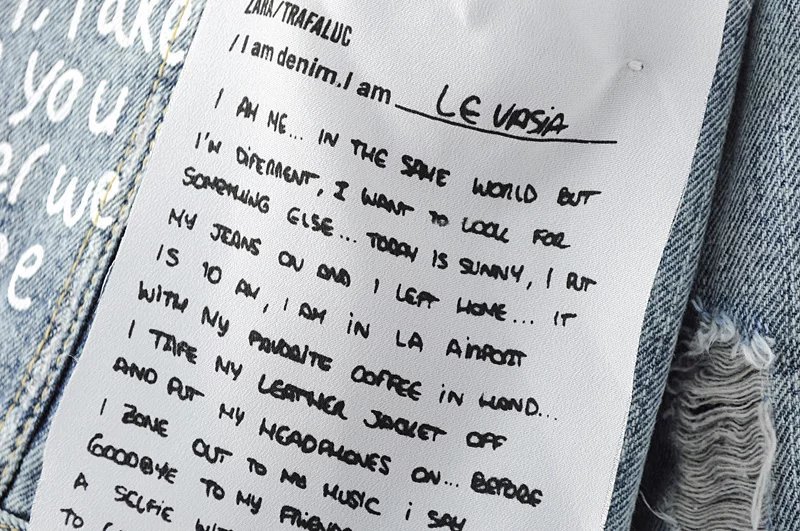 Take
you
er we
e
ZARA/TRAFALUC
/I am denim.I am LE VIRSIA
I AM ME... IN THE SAME WORLD BUT
I'M DIFERRENT, I WANT TO LOOK FOR
SOMETHING ELSE... TODAY IS SUNNY, I PUT
MY JEANS ON AND I LEFT HOME... IT
IS 10 AM, I AM IN LA AIRPORT
WITH MY FAVORITE COFFEE IN HAND...
I TAKE MY LEATHER JACKET OFF
AND PUT MY HEADPHONES ON... BEFORE
I ZONE OUT TO MY MUSIC I SAY
GOODBYE TO MY FRIENDS
A SELFIE WITH
TO